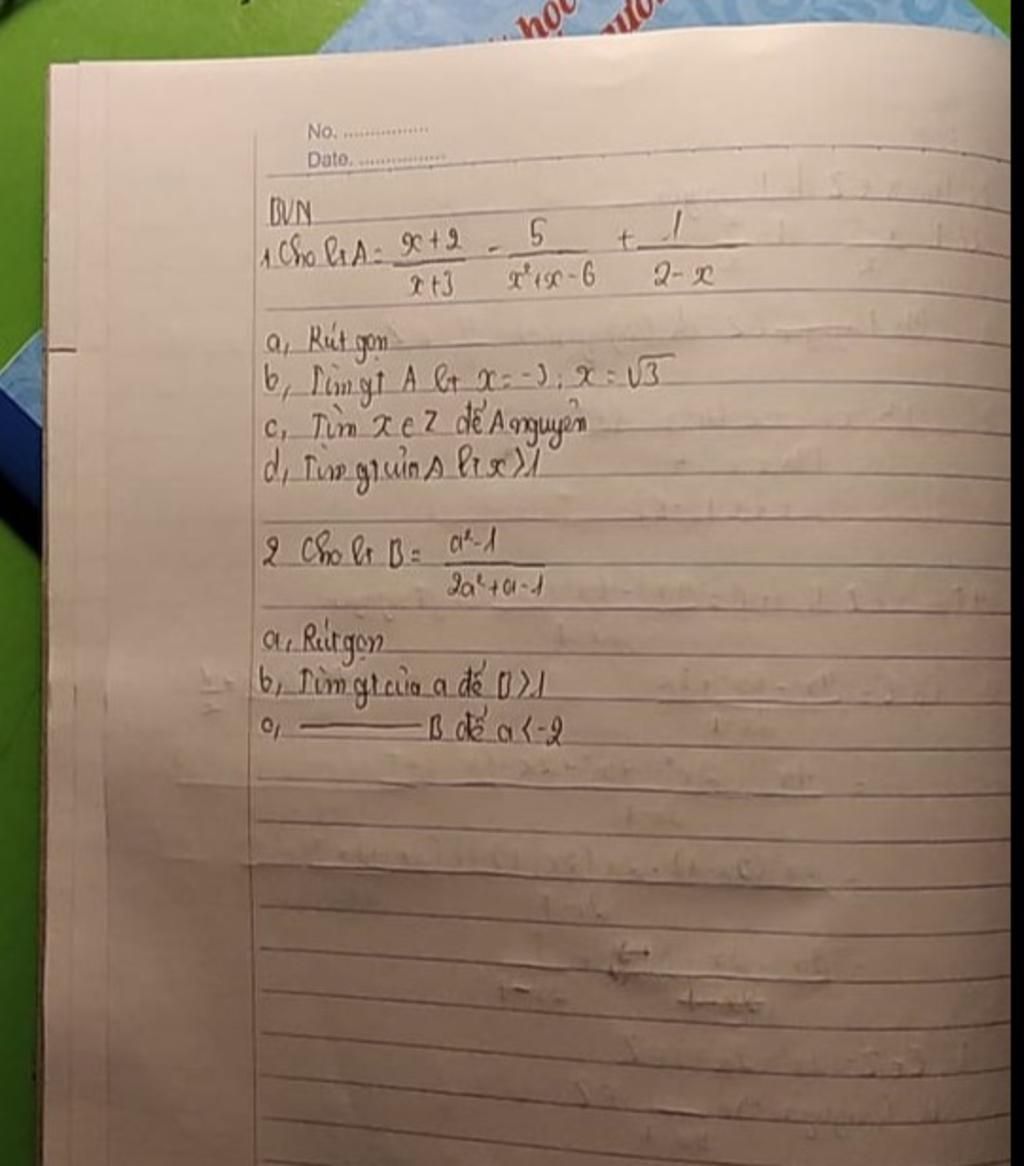 học
No. ...............
Date. ...............
BVN
1 Cho bt A = \frac{x+2}{x+3} - \frac{5}{x²+x-6} + \frac{1}{2-x}
a, Rút gọn
b, Tìm gt A bt x = -3; x = √3
c, Tìm x ∈ Z để A nguyên
d, Tìm gt của A bt x > 1
2 Cho bt B = \frac{a²-1}{2a²+a-1}
a, Rút gọn
b, Tìm gt của a để B > 1
c, ———— B để a < -2